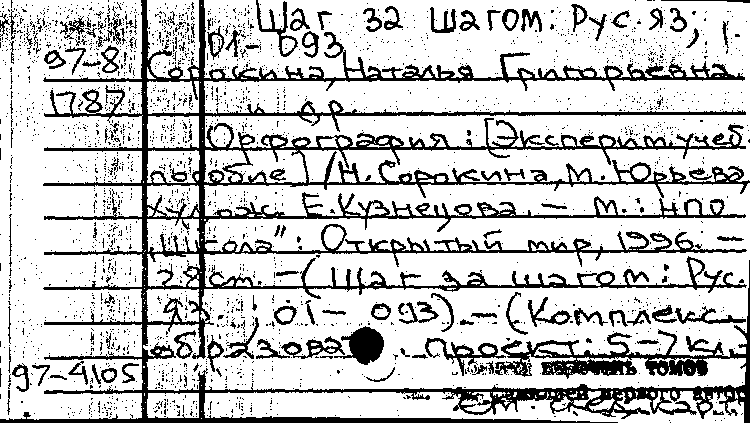 Шаг за шагом: Рус. яз;
01-093
97-8 Сорокина, Наталья Григорьевна
1787 и др.
Орфография : [Эксперим. учеб.
пособие] / Н. Сорокина, М. Юрьева,
Худож. Е. Кузнецова. – М. : НПО
„Школа" : Открытый мир, 1996. –
28 см. – (Шаг за шагом : Рус.
яз. ; 01 – 093). – (Комплекс.
образоват. проект: 5-7 кл.)
97-4105 перечень томов
первого автор
см. след. карт.